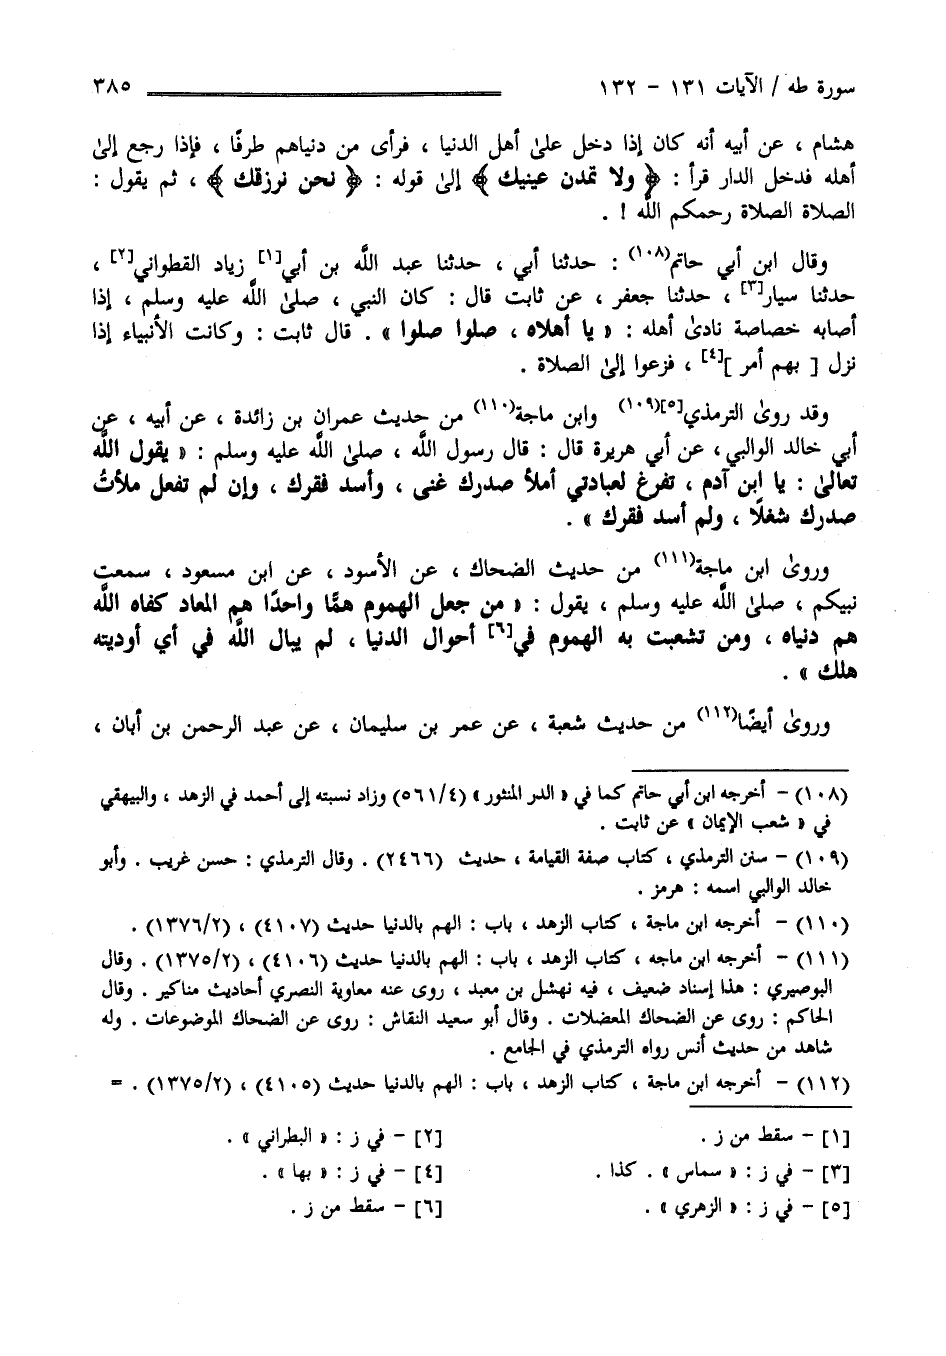 سورة طه / الآيات ١٣١ - ١٣٢ ٣٨٥
هشام ، عن أبيه أنه كان إذا دخل علىٰ أهل الدنيا ، فرأى من دنياهم طرفًا ، فإذا رجع إلىٰ
أهله فدخل الدار قرأ : ﴿ ولا تمدن عينيك ﴾ إلىٰ قوله : ﴿ نحن نرزقك ﴾ ، ثم يقول :
الصلاة الصلاة رحمكم اللَّه ! .
وقال ابن أبي حاتم(١٠٨) : حدثنا أبي ، حدثنا عبد اللَّه بن أبي[١] زياد القطواني[٢] ،
حدثنا سيار[٣] ، حدثنا جعفر ، عن ثابت قال : كان النبي ، صلىٰ اللَّه عليه وسلم ، إذا
أصابه خصاصة نادىٰ أهله : « يا أهلاه ، صلوا صلوا » . قال ثابت : وكانت الأنبياء إذا
نزل [ بهم أمر ][٤] ، فزعوا إلىٰ الصلاة .
وقد روىٰ الترمذي[٥](١٠٩) وابن ماجة(١١٠) من حديث عمران بن زائدة ، عن أبيه ، عن
أبي خالد الوالبي، عن أبي هريرة قال : قال رسول اللَّه ، صلىٰ اللَّه عليه وسلم : « يقول اللَّه
تعالىٰ : يا ابن آدم ، تفرغ لعبادتي أملأ صدرك غنى ، وأسد فقرك ، وإن لم تفعل ملأتُ
صدرك شغلًا ، ولم أسد فقرك » .
وروىٰ ابن ماجة(١١١) من حديث الضحاك ، عن الأسود ، عن ابن مسعود ، سمعت
نبيكم ، صلىٰ اللَّه عليه وسلم ، يقول : « من جعل الهموم همًّا واحدًا هم المعاد كفاه اللَّه
هم دنياه ، ومن تشعبت به الهموم في[٦] أحوال الدنيا ، لم يبال اللَّه في أي أوديته
هلك » .
وروىٰ أيضًا(١١٢) من حديث شعبة ، عن عمر بن سليمان ، عن عبد الرحمن بن أبان ،
(١٠٨) - أخرجه ابن أبي حاتم كما في « الدر المنثور » (٥٦١/٤) وزاد نسبته إلى أحمد في الزهد ، والبيهقي
في « شعب الإيمان » عن ثابت .
(١٠٩) - سنن الترمذي ، كتاب صفة القيامة ، حديث (٢٤٦٦) . وقال الترمذي : حسن غريب . وأبو
خالد الوالبي اسمه : هرمز .
(١١٠) - أخرجه ابن ماجة ، كتاب الزهد ، باب : الهم بالدنيا حديث (٤١٠٧) ، (١٣٧٦/٢) .
(١١١) - أخرجه ابن ماجه ، كتاب الزهد ، باب : الهم بالدنيا حديث (٤١٠٦) ، (١٣٧٥/٢) . وقال
البوصيري : هذا إسناد ضعيف ، فيه نهشل بن معبد ، روى عنه معاوية النصري أحاديث مناكير . وقال
الحاكم : روى عن الضحاك المعضلات . وقال أبو سعيد النقاش : روى عن الضحاك الموضوعات . وله
شاهد من حديث أنس رواه الترمذي في الجامع .
(١١٢) - أخرجه ابن ماجة ، كتاب الزهد ، باب : الهم بالدنيا حديث (٤١٠٥) ، (١٣٧٥/٢) . =
[١] - سقط من ز . [٢] - في ز : « البطراني » .
[٣] - في ز : « سماس » . كذا . [٤] - في ز : « بها » .
[٥] - في ز : « الزهري » . [٦] - سقط من ز .